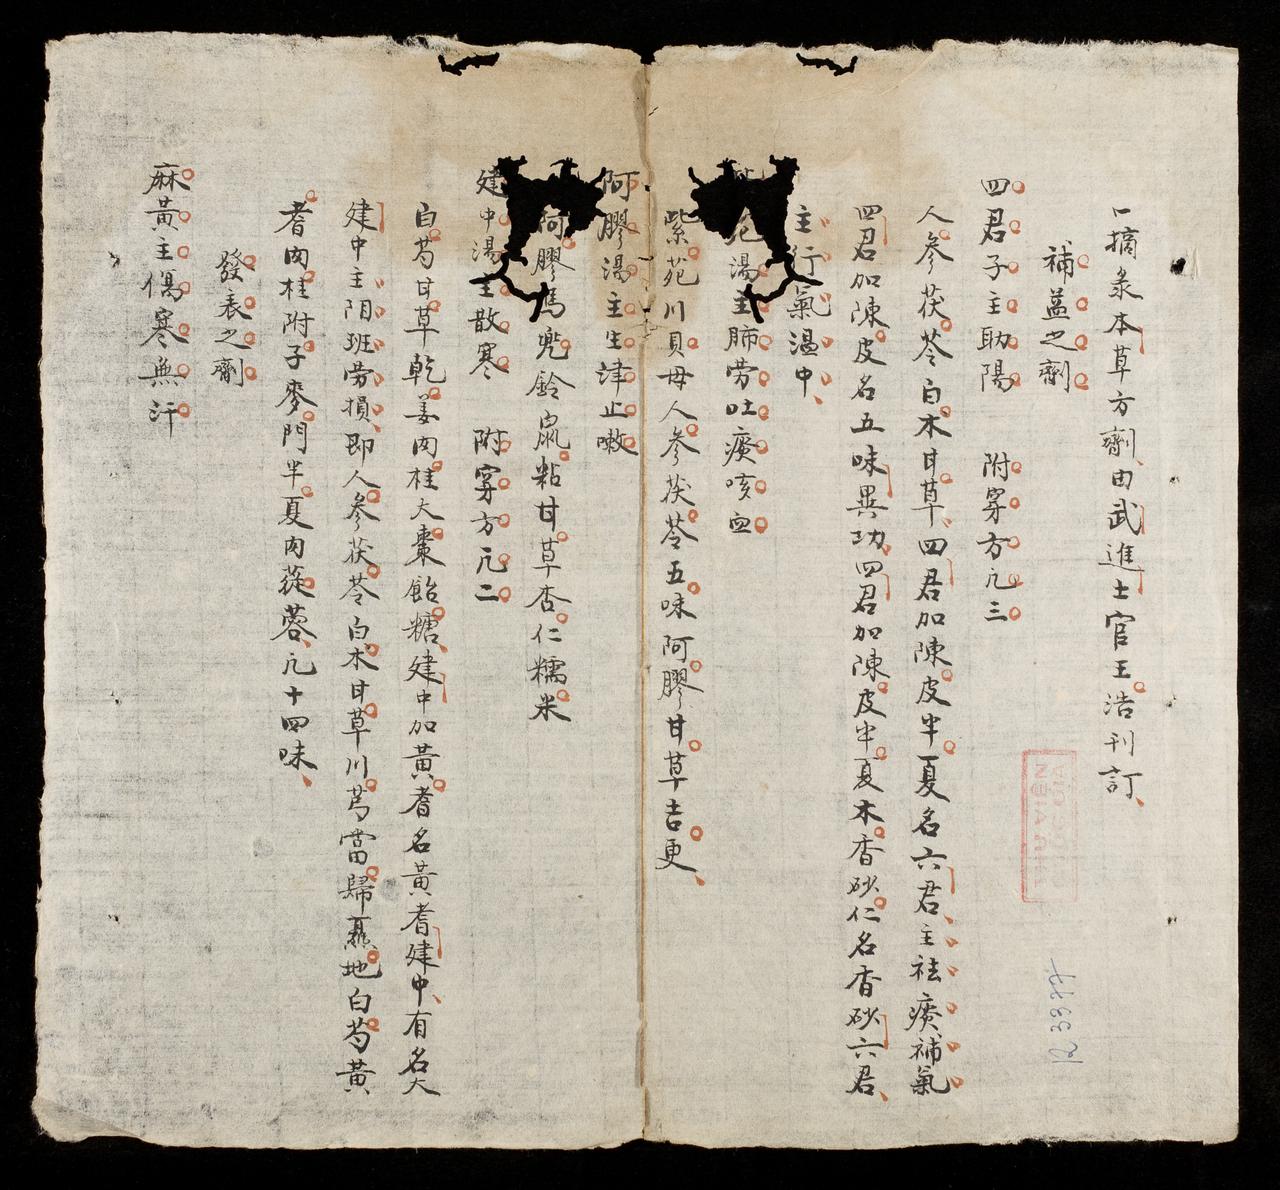 一摘彔本草方劑由武進士官王浩刊訂
補益之劑
四君子主助陽 附穿方凢三
人參茯苓白木甘草四君加陳皮半夏名六君主祛痰補氣
四君加陳皮名五味異功四君加陳皮半夏木香砂仁名香砂六君
主行氣温中
湯主肺劳吐痰咳血
紫苑川貝母人參茯苓五味阿膠甘草吉更
阿膠湯主生津止嗽
阿膠馬兠鈴鼠粘甘草杏仁糯米
建中湯主散寒 附穿方凢二
白芍甘草乾姜肉桂大棗飴糖建中加黃耆名黃耆建中有名大
建中主阴班劳損即人參茯苓白木甘草川芎當歸熟地白芍黃
耆肉桂附子麥門半夏肉蓯蓉凢十四味
發表之劑
麻黃主傷寒無汗
12.3384